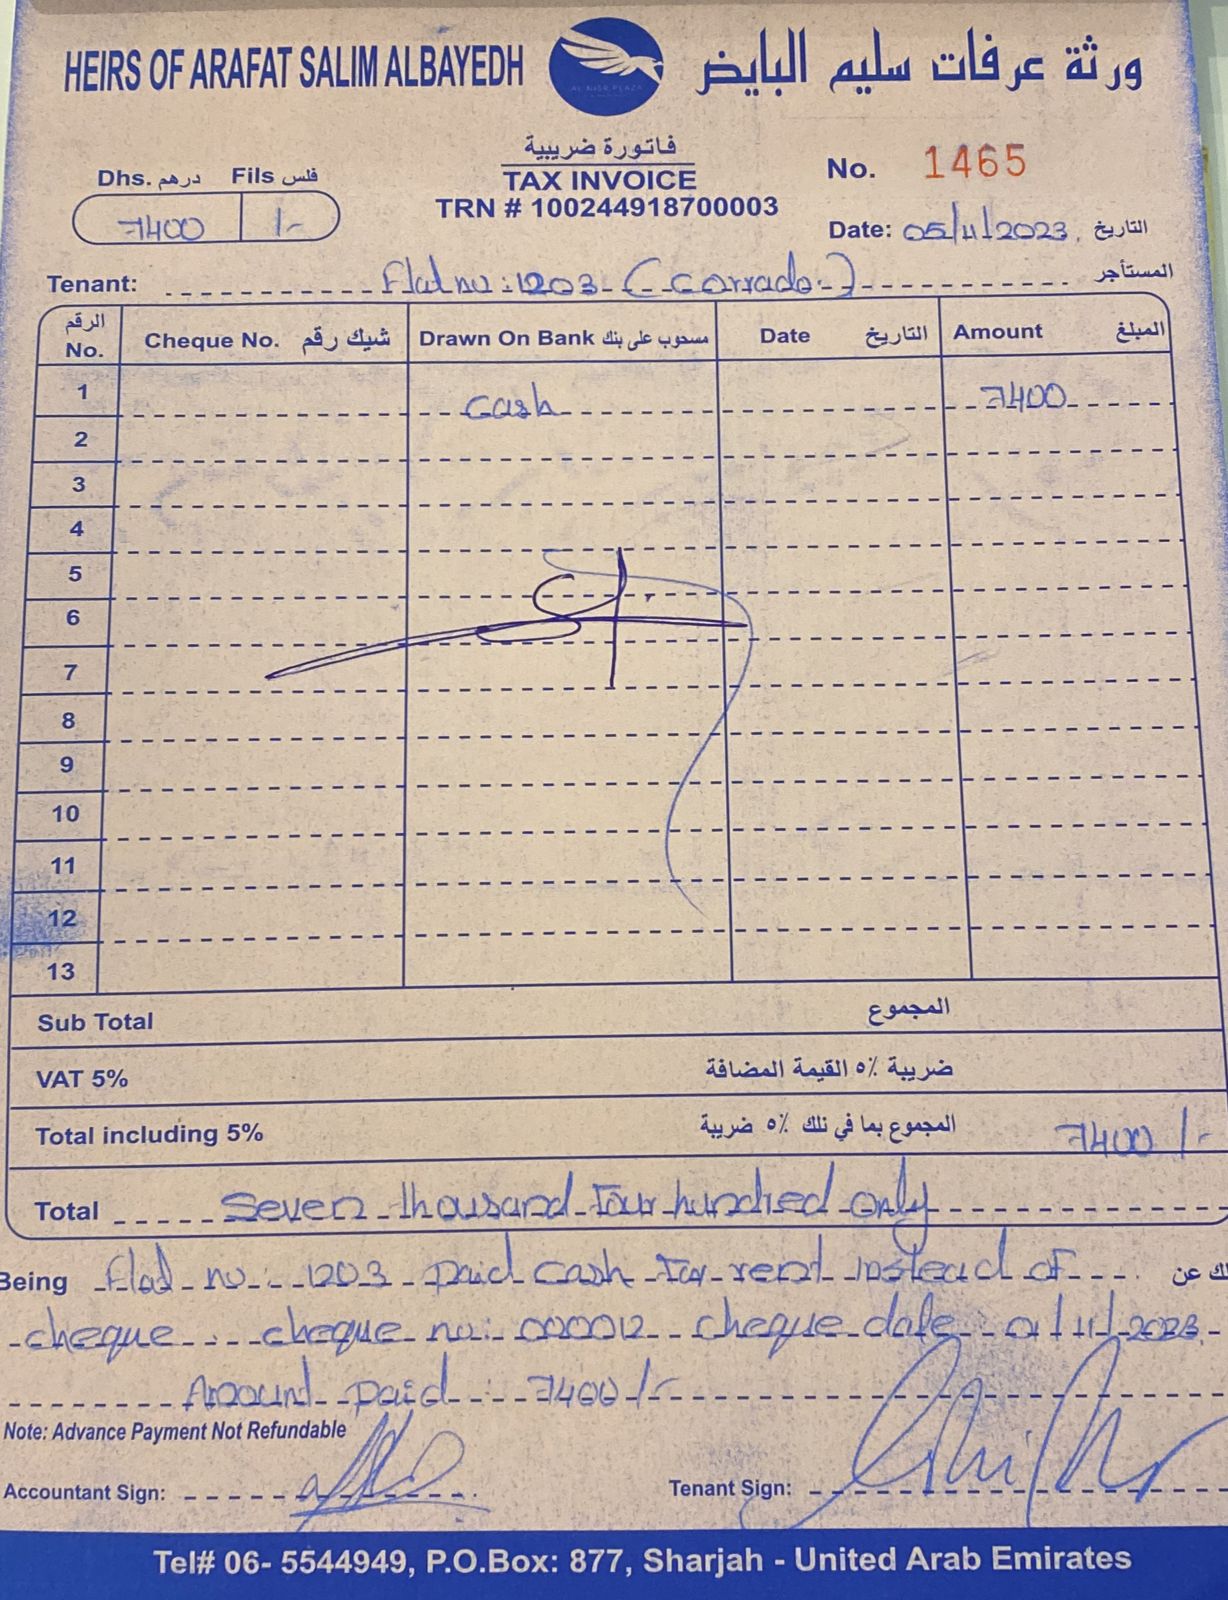 HEIRS OF ARAFAT SALIM ALBAYEDH
AL NISR PLAZA
ورثة عرفات سليم البايض
فاتورة ضريبية
TAX INVOICE
TRN # 100244918700003
Dhs. درهم Fils فلس
7400 /-
No. 1465
Date: 05/11/2023 التاريخ
Tenant: Flat no: 1203 (Corrado) المستأجر
الرقم No. Cheque No. شيك رقم Drawn On Bank مسحوب على بنك Date التاريخ Amount المبلغ
1 Cash 7400
2
3
4
5
6
7
8
9
10
11
12
13
Sub Total المجموع
VAT 5% ضريبة ٥٪ القيمة المضافة
Total including 5% المجموع بما في نلك ٥٪ ضريبة 7400/-
Total Seven thousand Four hundred only
Being Flat no: 1203 paid cash for rent instead of لك عن
cheque cheque no: 000012 cheque date 01/11/2023
Amount paid: 7400/-
Note: Advance Payment Not Refundable
Accountant Sign: Tenant Sign:
Tel# 06- 5544949, P.O.Box: 877, Sharjah - United Arab Emirates